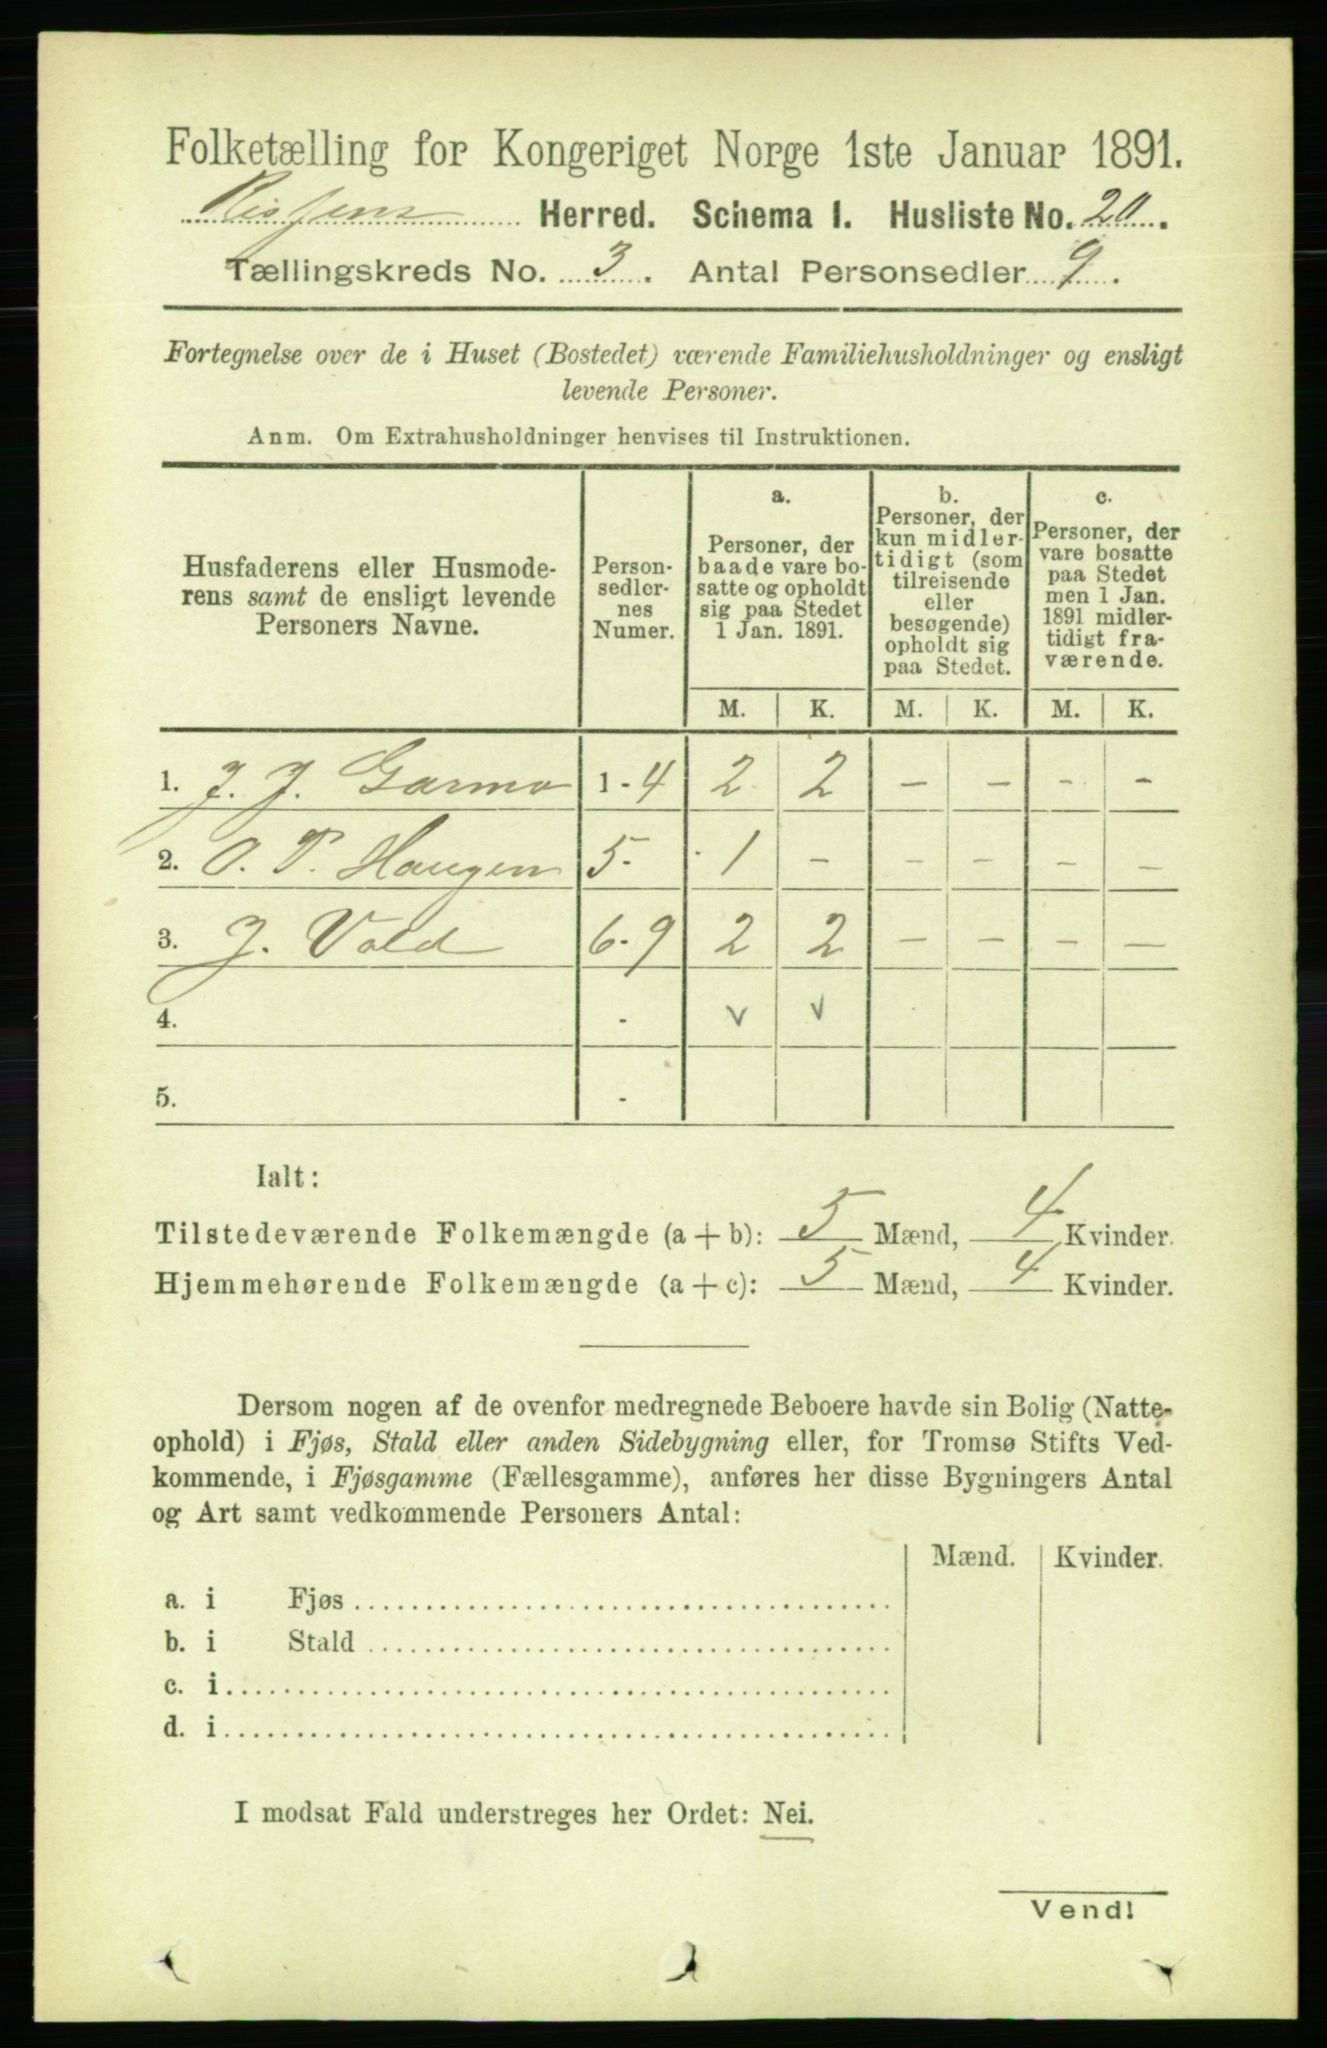 Folketælling for Kongeriget Norge 1ste Januar 1891.
Rissens Herred. Schema I. Husliste No. 20.
Tællingskreds No. 3. Antal Personsedler 9.
Fortegnelse over de i Huset (Bostedet) værende Familiehusholdninger og ensligt
levende Personer.
Anm. Om Extrahusholdninger henvises til Instruktionen.
Husfaderens eller Husmode-
rens samt de ensligt levende
Personers Navne.
Person-
sedler-
nes
Numer.
a.
Personer, der
baade vare bo-
satte og opholdt
sig paa Stedet
1 Jan. 1891.
b.
Personer, der
kun midler-
tidigt (som
tilreisende
eller
besøgende)
opholdt sig
paa Stedet.
c.
Personer, der
vare bosatte
paa Stedet
men 1 Jan.
1891 midler-
tidigt fra-
værende.
M. K. M. K. M. K.
1. J. J. Garmo 1-4 2 2 - - - -
2. O. P. Haugen 5- 1 - - - - -
3. J. Vold 6-9 2 2 - - - -
4. - v v
5. -
Ialt:
Tilstedeværende Folkemængde (a + b): 5 Mænd, 4 Kvinder.
Hjemmehørende Folkemængde (a + c): 5 Mænd, 4 Kvinder.
Dersom nogen af de ovenfor medregnede Beboere havde sin Bolig (Natte-
ophold) i Fjøs, Stald eller anden Sidebygning eller, for Tromsø Stifts Ved-
kommende, i Fjøsgamme (Fællesgamme), anføres her disse Bygningers Antal
og Art samt vedkommende Personers Antal:
Mænd. Kvinder.
a. i Fjøs
b. i Stald
c. i
d. i
I modsat Fald understreges her Ordet: Nei.
Vend!